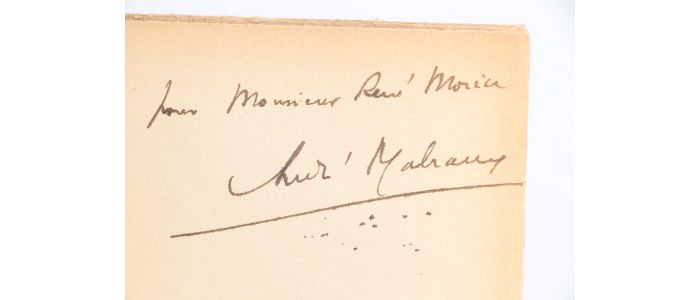 pour Monsieur René Morice
André Malraux